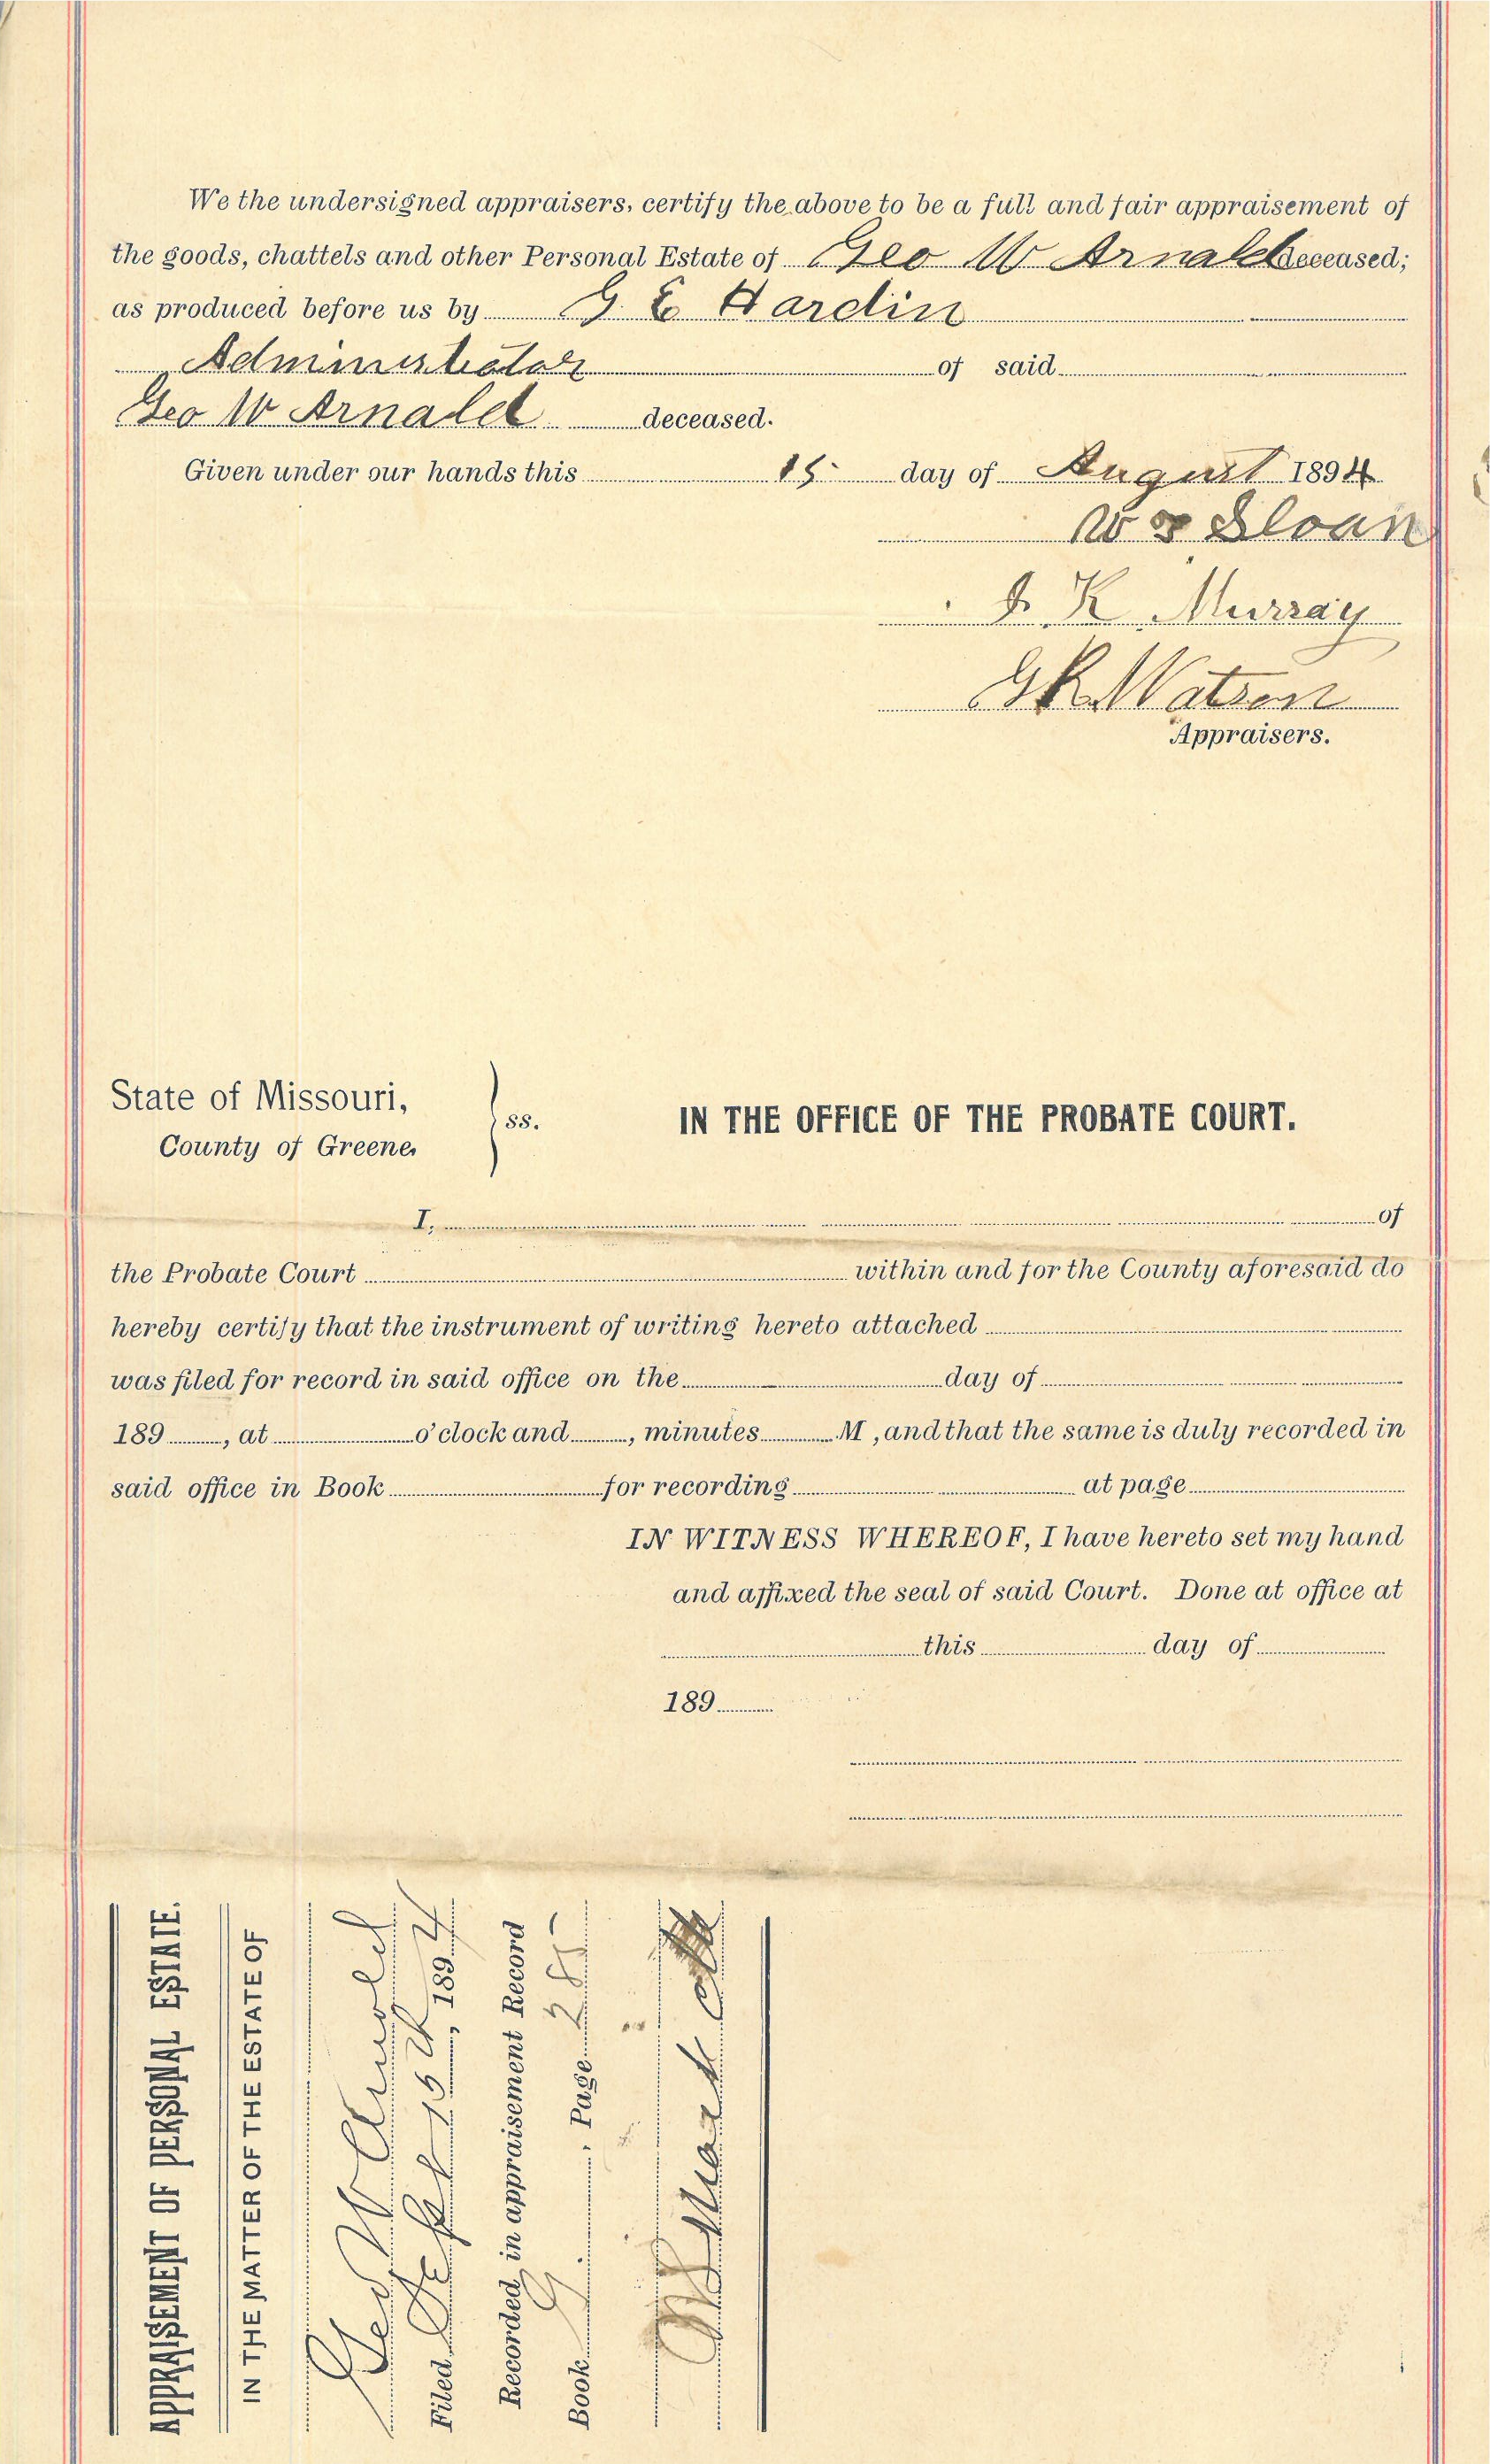 We the undersigned appraisers, certify the above to be a full and fair appraisement of
the goods, chattels and other Personal Estate of Geo W Arnald deceased;
as produced before us by G E Hardin
Administrator of said
Geo W Arnald deceased.
Given under our hands this 15 day of August 1894
W Sloan
K Murray
G K Watson
Appraisers.
State of Missouri,
County of Greene,
ss.
IN THE OFFICE OF THE PROBATE COURT.
I, of
the Probate Court within and for the County aforesaid do
hereby certify that the instrument of writing hereto attached
was filed for record in said office on the day of
189 , at o'clock and , minutes M , and that the same is duly recorded in
said office in Book for recording at page
IN WITNESS WHEREOF, I have hereto set my hand
and affixed the seal of said Court. Done at office at
this day of
189
APPRAISEMENT OF PERSONAL ESTATE.
IN THE MATTER OF THE ESTATE OF
Geo W Arnold
Filed Sept 15th, 1894
Recorded in appraisement Record
Book G , Page 285